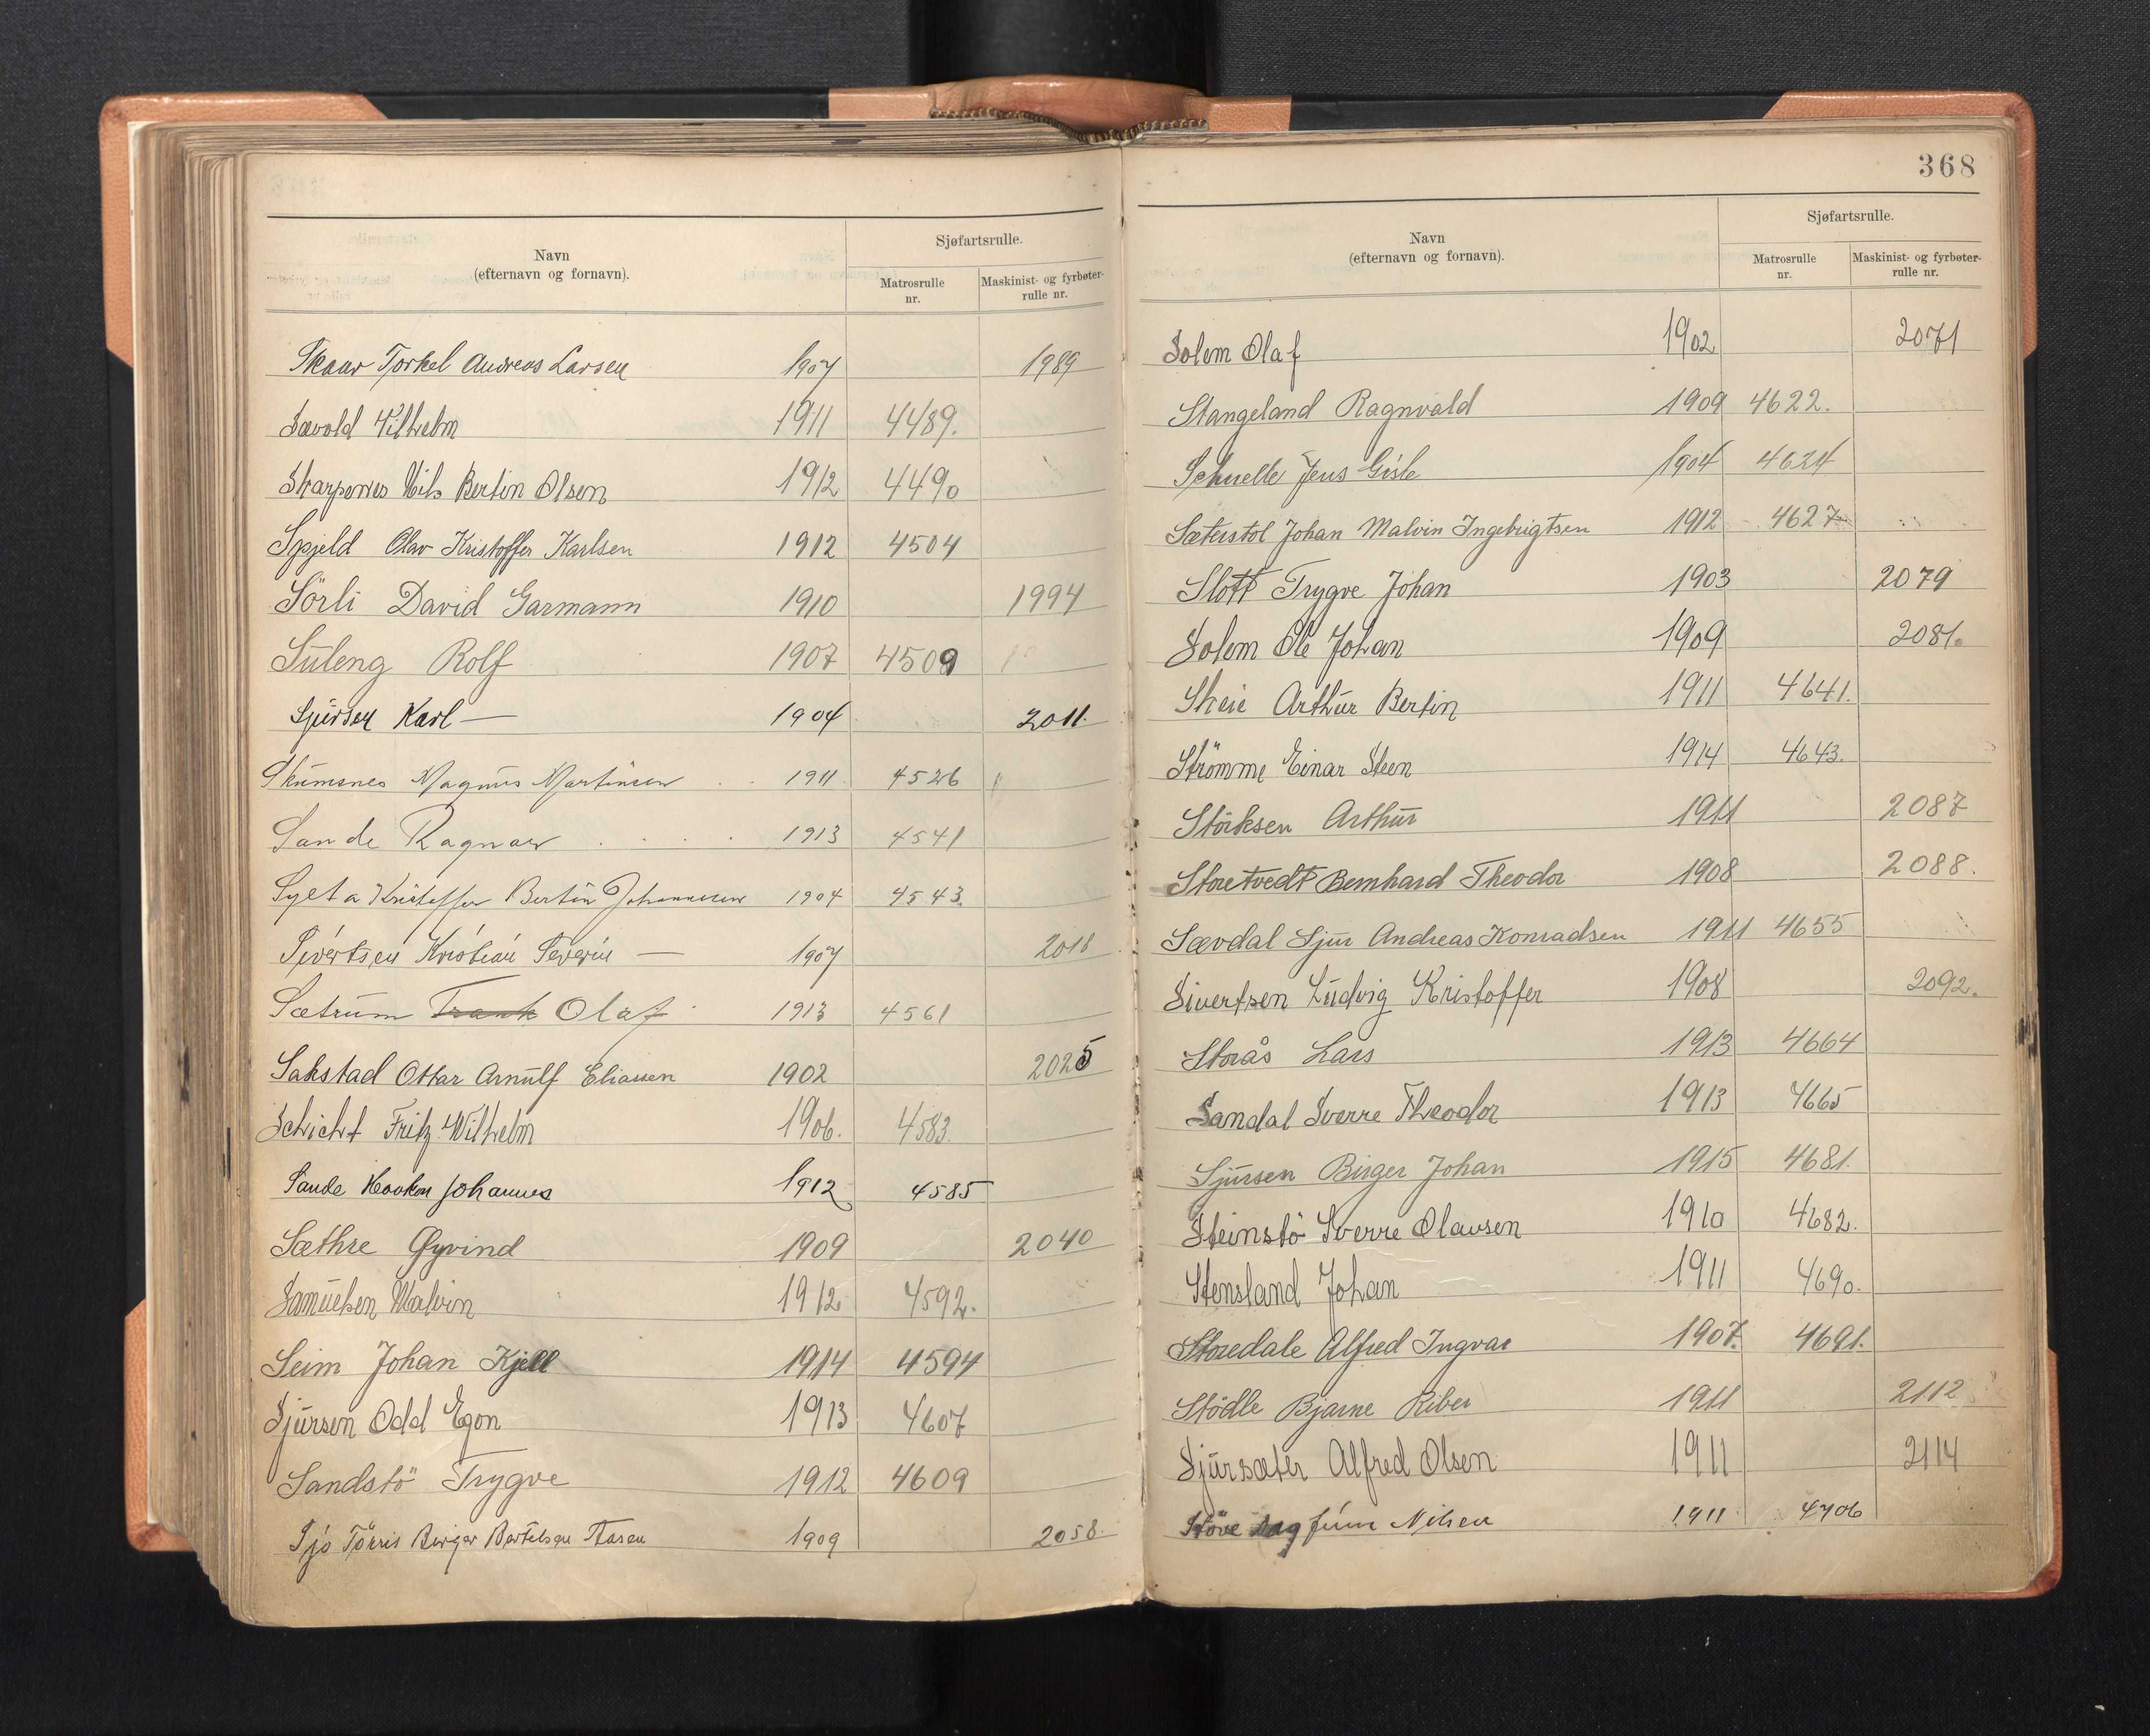 Navn
(efternavn og fornavn).
Sjøfartsrulle.
Matrosrulle
nr.
Maskinist- og fyrbøter-
rulle nr.
Skaar Torkel Andreas Larsen 1907 1989
Sævold Vilhelm 1911 4489.
Skarpenes Nils Bertin Olsen 1912 4490
Spjeld Olav Kristoffer Karlsen 1912 4504
Sörli David Garmann 1910 1994
Süleng Rolf 1907 4509
Sjürsen Karl — 1904 2011.
Skümsnes Magnüs Martinsen 1911 4526
Sande Ragnar 1913 4541
Sylta Kristoffer Bertin Johannessen 1904 4543.
Sivertsen Kristian Severin — 1907 2018
Sætrüm Frank Olaf 1913 4561
Sakstad Ottar Arnülf Eliassen 1902 2025
Schicht Fritz Wilhelm 1906. 4583.
Sande Haakon Johannes 1912 4585
Sæthre Øyvind 1909 2040
Samüelsen Malvin 1912 4592.
Seim Johan Kjell 1914 4594
Sjürsen Odd Egon 1913 4607
Sandstö Trygve 1912 4609
Sjö Törris Birger Bertelsen Aasen 1909 2058.
368
Navn
(efternavn og fornavn).
Sjøfartsrulle.
Matrosrulle
nr.
Maskinist- og fyrbøter-
rulle nr.
Solem Olaf 1902 2071
Stangeland Ragnvald 1909 4622.
Schnelle Jens Gisle 1904 4624
Sæterstøl Johan Malvin Ingebrigtsen 1912 4627
Slott Trygve Johan 1903 2079
Solem Ole Johan 1909 2081.
Skeie Arthür Bertin 1911 4641.
Strömme Einar Steen 1914 4643.
Störksen Arthür 1911 2087
Storetvedt Bernhard Theodor 1908 2088.
Sævdal Sjur Andreas Konradsen 1911 4655
Sivertsen Lüdvig Kristoffer 1908 2092.
Storås Lars 1913 4664
Sandal Sverre Theodor 1913 4665
Sjürsen Birger Johan 1915 4681.
Steinstö Sverre Olavsen 1910 4682.
Stensland Johan 1911 4690.
Storedale Alfred Ingvar 1907. 4691.
Stödle Bjarne Riber 1911 2112
Sjürsæter Alfred Olsen 1911 2114
Störe Dagfinn Nilsen 1911 4706